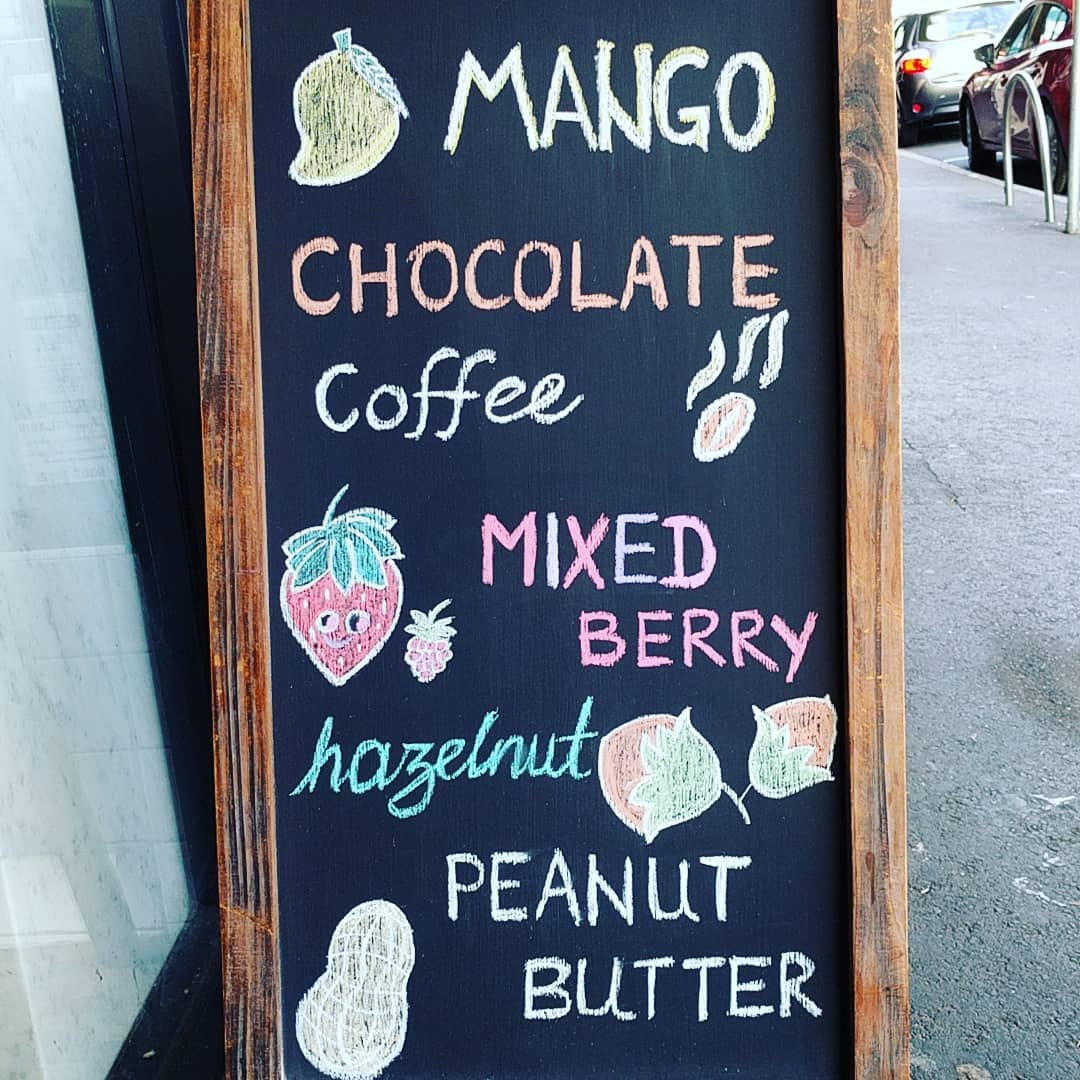 MANGO
CHOCOLATE
Coffee
MIXED
BERRY
hazelnut
PEANUT
BUTTER